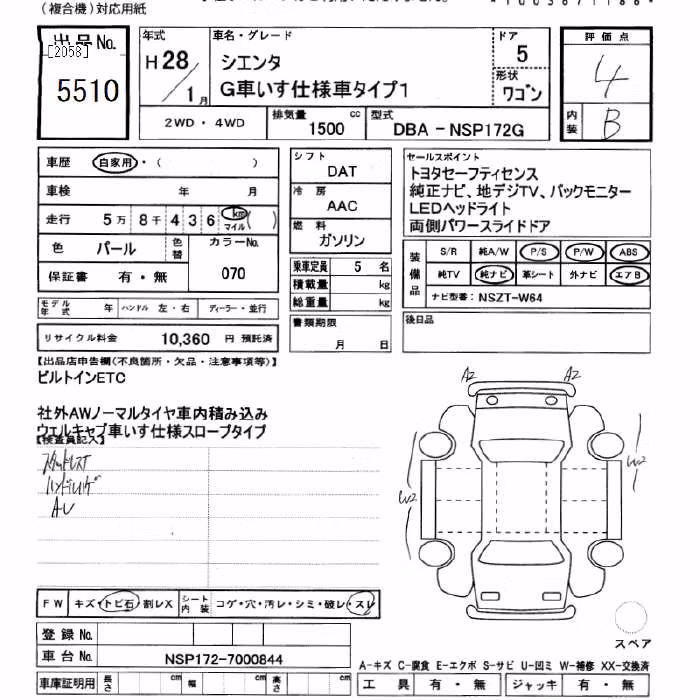 (複合機)対応用紙
出品No.
[2058]
5510
年式
H28/1月
車名・グレード
シエンタ
G車いす仕様車タイプ1
ドア
5
形状
ワゴン
評価点
4
内装
B
2WD・4WD
排気量
1500 cc
型式
DBA-NSP172G
車歴 自家用・( )
車検 年 月
走行 5万 8千 4 3 6 km マイル ( )
色 パール 色替 カラーNo.
070
保証書 有・無
シフト
DAT
冷房
AAC
燃料
ガソリン
乗車定員 5 名
積載量 kg
総重量 kg
セールスポイント
トヨタセーフティセンス
純正ナビ、地デジTV、バックモニター
LEDヘッドライト
両側パワースライドドア
装備品
S/R 純A/W P/S P/W ABS
純TV 純ナビ 革シート 外ナビ エアB
ナビ型番: NSZT-W64
モデル年式 年 ハンドル 左・右 ディーラー・並行
リサイクル料金 10,360 円 預託済
書類期限
月 日
後日品
【出品店申告欄(不良箇所・欠品・注意事項等)】
ビルトインETC
社外AWノーマルタイヤ車内積み込み
ウエルキャブ車いす仕様スロープタイプ
【検査員記入】
AU
A2 A2
W2 W2
FW キズ・トビ石・割レX シート内装 コゲ・穴・汚レ・シミ・破レ・スレ
スペア
登録No.
車台No. NSP172-7000844
A-キズ C-腐食 E-エクボ S-サビ U-凹ミ W-補修 XX-交換済
車庫証明用 長さ cm 幅 cm 高さ cm
工具 有・無 ジャッキ 有・無